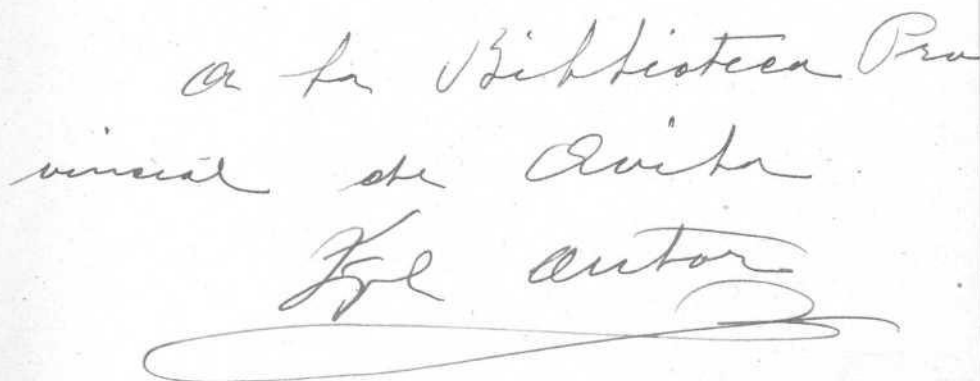 A la Biblioteca Pro
vincial de Avila
El autor